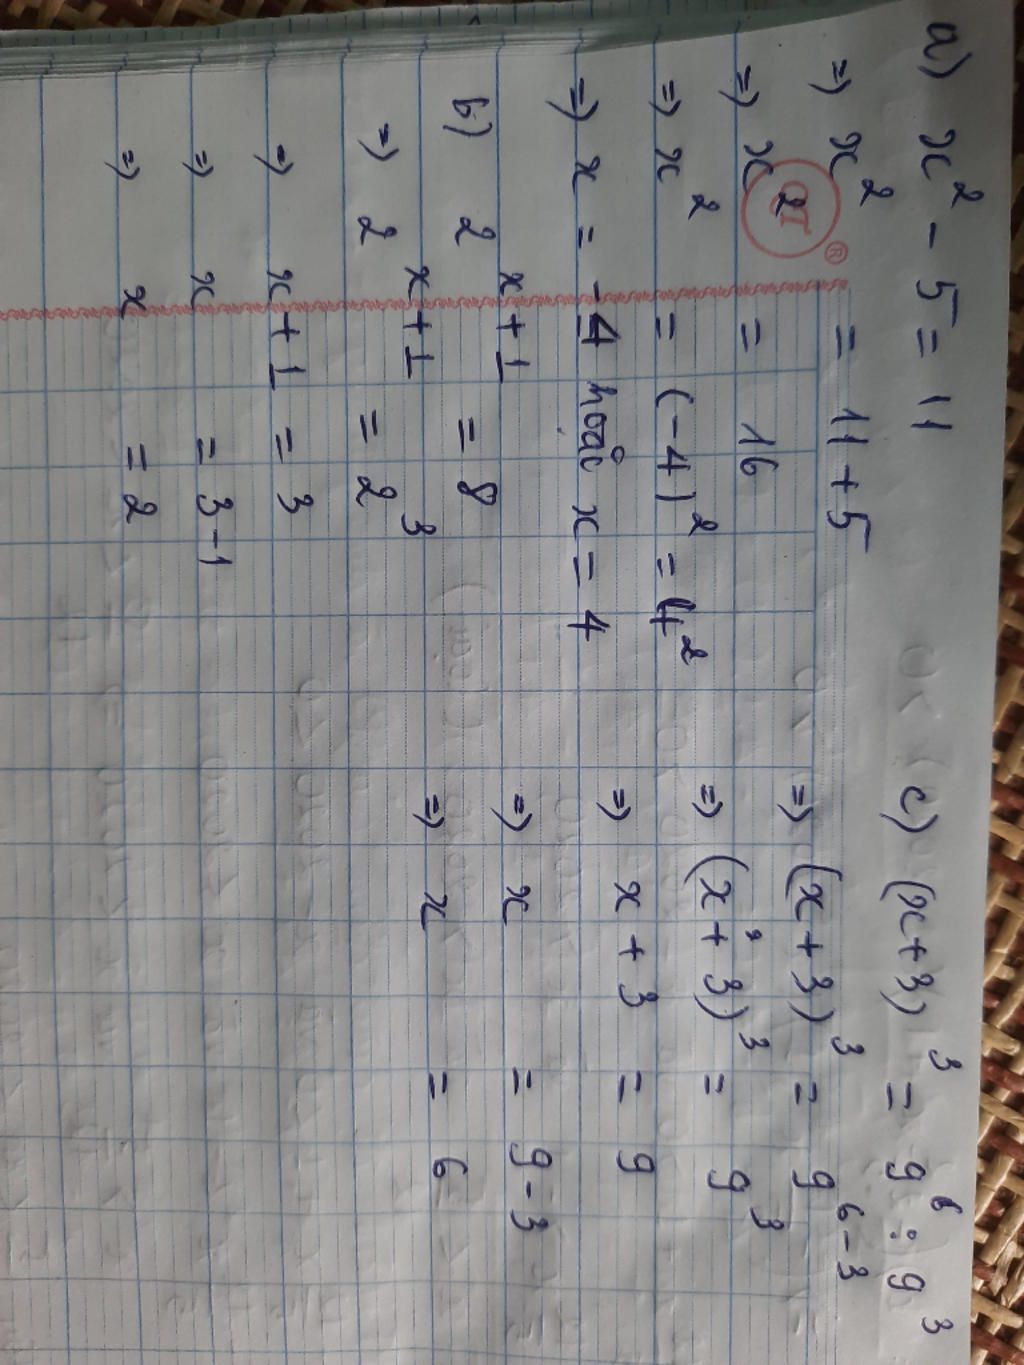 a) x² - 5 = 11
=> x² = 11 + 5
=> x² = 16
=> x² = (-4)² = 4²
=> x = -4 hoặc x = 4
b) 2ˣ⁺¹ = 8
=> 2ˣ⁺¹ = 2³
=> x + 1 = 3
=> x = 3 - 1
=> x = 2
c) (x+3)³ = 9⁶ : 9³
=> (x + 3)³ = 9⁶⁻³
=> (x + 3)³ = 9³
=> x + 3 = 9
=> x = 9 - 3
=> x = 6
®